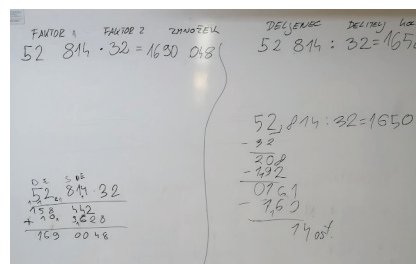 FAKTOR 1 FAKTOR 2 ZMNOŽEK
52 814 · 32 = 1690 048
D T S D E
52 814 · 32
158 442
+ 10 5628
169 0048
DELJENEC DELITELJ
52 814 : 32 = 165
52,814 : 32 = 1650
- 32
208
- 192
0161
- 160
14 ost.